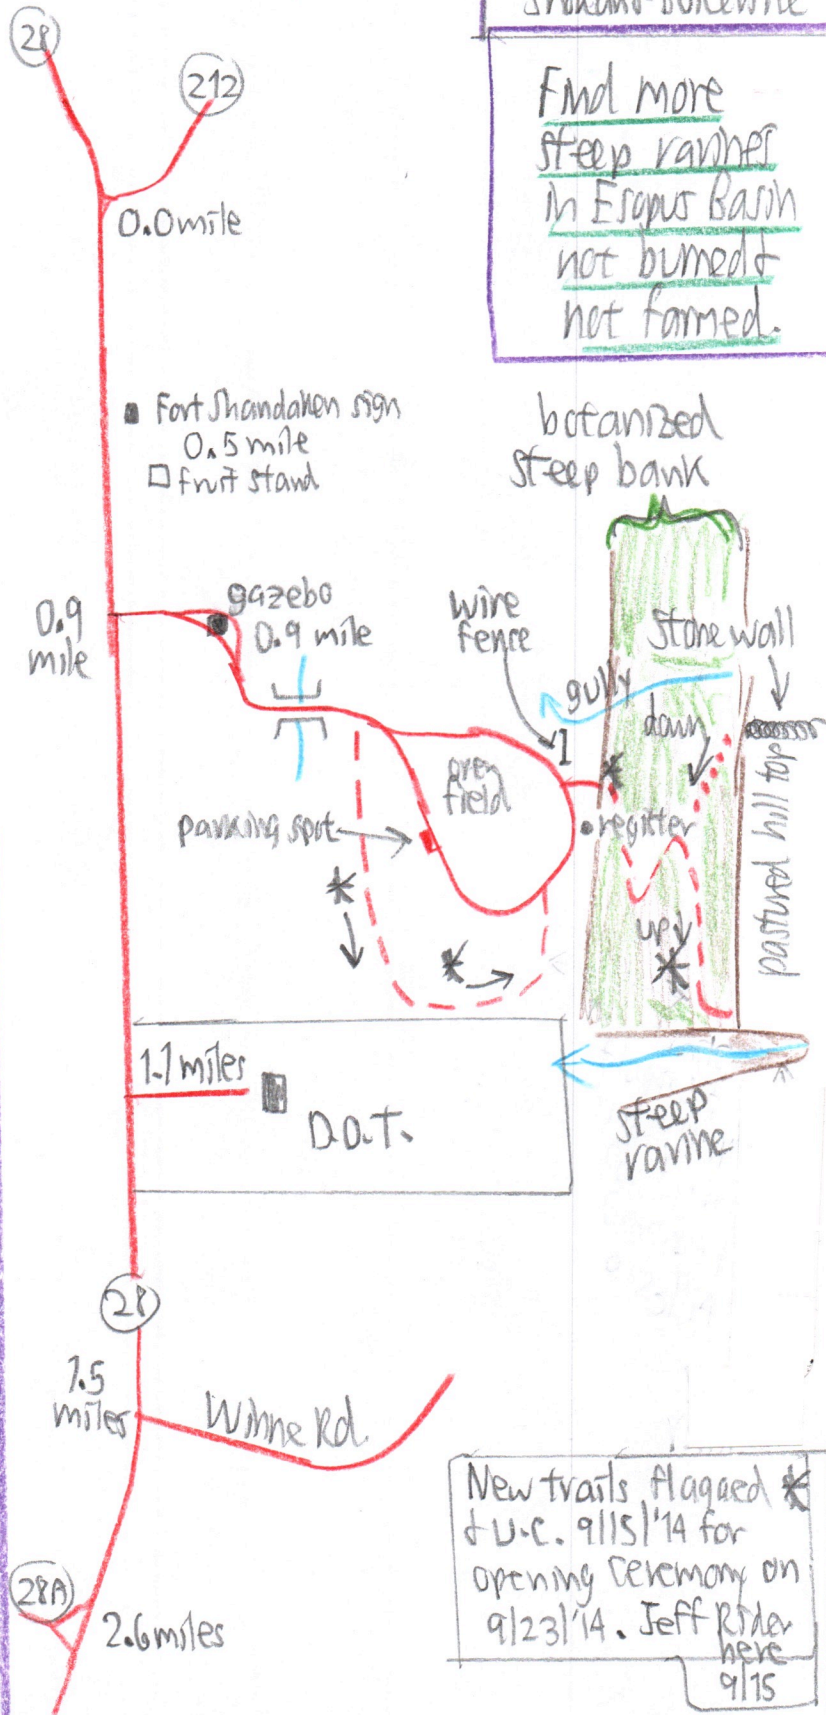 28
212
0.0 mile
Find more
steep ravines
in Esopus Basin
not burned &
not farmed.
Fort Shandaken sign
0.5 mile
fruit stand
botanized
steep bank
0.9
mile
gazebo
0.9 mile
wire
fence
stone wall
gully
down
open
field
parking spot
register
pastured hill top
*
*
*
*
up
1.1 miles
D.O.T.
steep
ravine
28
1.5
miles
Winne Rd.
New trails flagged *
& U.C. 9/15/'14 for
opening ceremony on
9/23/'14. Jeff Rider
here
9/15
28A
2.6 miles